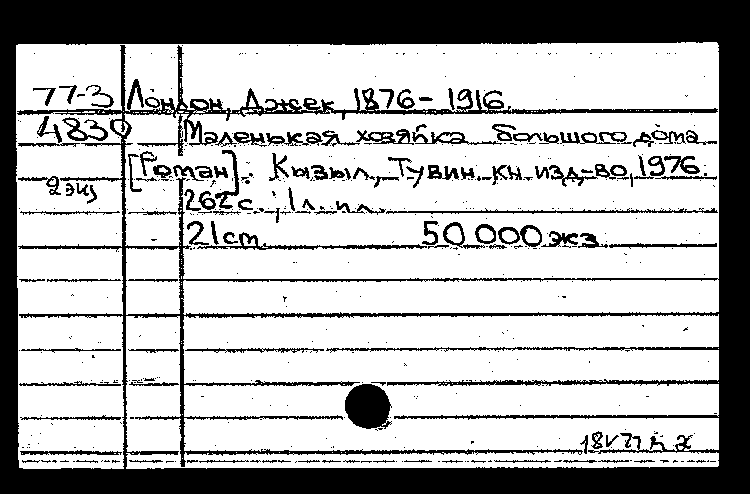 77-3 Лондон, Джек, 1876-1916.
4830 Маленькая хозяйка большого дома
[Роман]. Кызыл, Тувин. кн. изд-во, 1976.
2 экз
262 с.; 1 л. ил.
21 cm. 50 000 экз